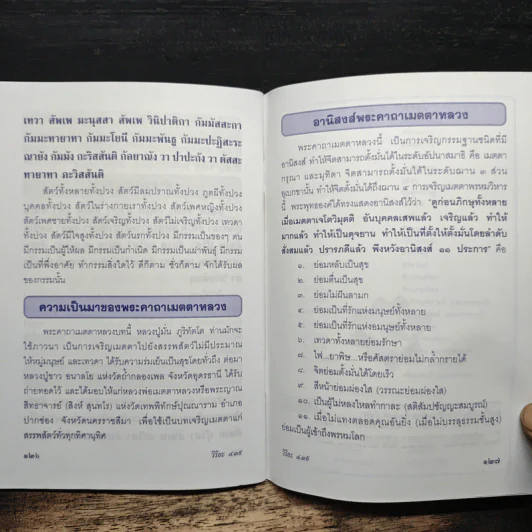 เทวา สัพเพ มะนุสสา สัพเพ วินิปาติกา กัมมัสสะกา
กัมมะทายาทา กัมมะโยนี กัมมะพันธู กัมมะปะฏิสะระ
ณายัง กัมมัง กะริสสันติ กัลยาณัง วา ปาปะกัง วา ตัสสะ
ทายาทา ภะวิสสันติ
สัตว์ทั้งหลายทั้งปวง สัตว์มีลมปราณทั้งปวง ภูตผีทั้งปวง
บุคคลทั้งปวง สัตว์ในร่างกายเราทั้งปวง สัตว์เพศหญิงทั้งปวง
สัตว์เพศชายทั้งปวง สัตว์เจริญทั้งปวง สัตว์ไม่เจริญทั้งปวง เทวดา
ทั้งปวง สัตว์มีใจสูงทั้งปวง สัตว์นรกทั้งปวง มีกรรมเป็นของๆ ตน
มีกรรมเป็นผู้ให้ผล มีกรรมเป็นกำเนิด มีกรรมเป็นเผ่าพันธุ์ มีกรรม
เป็นที่พึ่งอาศัย ทำกรรมสิ่งใดไว้ ดีก็ตาม ชั่วก็ตาม จักได้รับผล
ของกรรมนั้น
ความเป็นมาของพระคาถาเมตตาหลวง
พระคาถาเมตตาหลวงบทนี้ หลวงปู่มั่น ภูริทัตโต ท่านมักจะ
ใช้ภาวนา เป็นการเจริญเมตตาไปยังสรรพสัตว์ไม่มีประมาณ
ให้หมู่มนุษย์ และเทวดา ได้รับความร่มเย็นเป็นสุขโดยทั่วถึง ต่อมา
หลวงปู่ขาว อนาลโย แห่งวัดถ้ำกลองเพล จังหวัดอุดรธานี ได้รับ
ถ่ายทอดไว้ และได้มอบให้แก่หลวงพ่อเมตตาหลวงหรือพระญาณ
สิทธาจารย์ (สิงห์ สุนทโร) แห่งวัดเทพพิทักษ์ปุณณาราม อำเภอ
ปากช่อง จังหวัดนครราชสีมา เพื่อใช้เป็นบทเจริญเมตตาแก่
สรรพสัตว์ทั่วทุกทิศานุทิศ
๑๒๖
วิริยะ ๔๓๕
อานิสงส์พระคาถาเมตตาหลวง
พระคาถาเมตตาหลวงนี้ เป็นการเจริญกรรมฐานชนิดที่มี
อานิสงส์ ทำให้จิตสามารถตั้งมั่นได้ในระดับอัปปนาสมาธิ คือ เมตตา
กรุณา และมุทิตา จิตสามารถตั้งมั่นได้ในระดับฌาน ๓ ส่วน
อุเบกขานั้น ทำให้จิตตั้งมั่นได้ถึงฌาน ๔ การเจริญเมตตาพรหมวิหาร
นี้ พระพุทธองค์ได้ทรงแสดงอานิสงส์ไว้ว่า "ดูก่อนภิกษุทั้งหลาย
เมื่อเมตตาเจโตวิมุตติ อันบุคคลเสพแล้ว เจริญแล้ว ทำให้
มากแล้ว ทำให้เป็นดุจยาน ทำให้เป็นที่ตั้งให้ตั้งมั่นโดยลำดับ
สั่งสมแล้ว ปรารภดีแล้ว พึงหวังอานิสงส์ ๑๑ ประการ" คือ
๑. ย่อมหลับเป็นสุข
๒. ย่อมตื่นเป็นสุข
๓. ย่อมไม่ฝันลามก
๔. ย่อมเป็นที่รักแห่งมนุษย์ทั้งหลาย
๕. ย่อมเป็นที่รักแห่งอมนุษย์ทั้งหลาย
๖. เทวดาทั้งหลายย่อมรักษา
๗. ไฟ...ยาพิษ...หรือศัสตราย่อมไม่กล้ำกรายได้
๘. จิตย่อมตั้งมั่นได้โดยเร็ว
๙. สีหน้าย่อมผ่องใส (วรรณะย่อมผ่องใส)
๑๐. เป็นผู้ไม่หลงใหลทำกาละ (สติสัมปชัญญะสมบูรณ์)
๑๑. เมื่อไม่แทงตลอดคุณอันยิ่ง (เมื่อไม่บรรลุธรรมชั้นสูง)
ย่อมเป็นผู้เข้าถึงพรหมโลก
วิริยะ ๔๓๕
๑๒๗